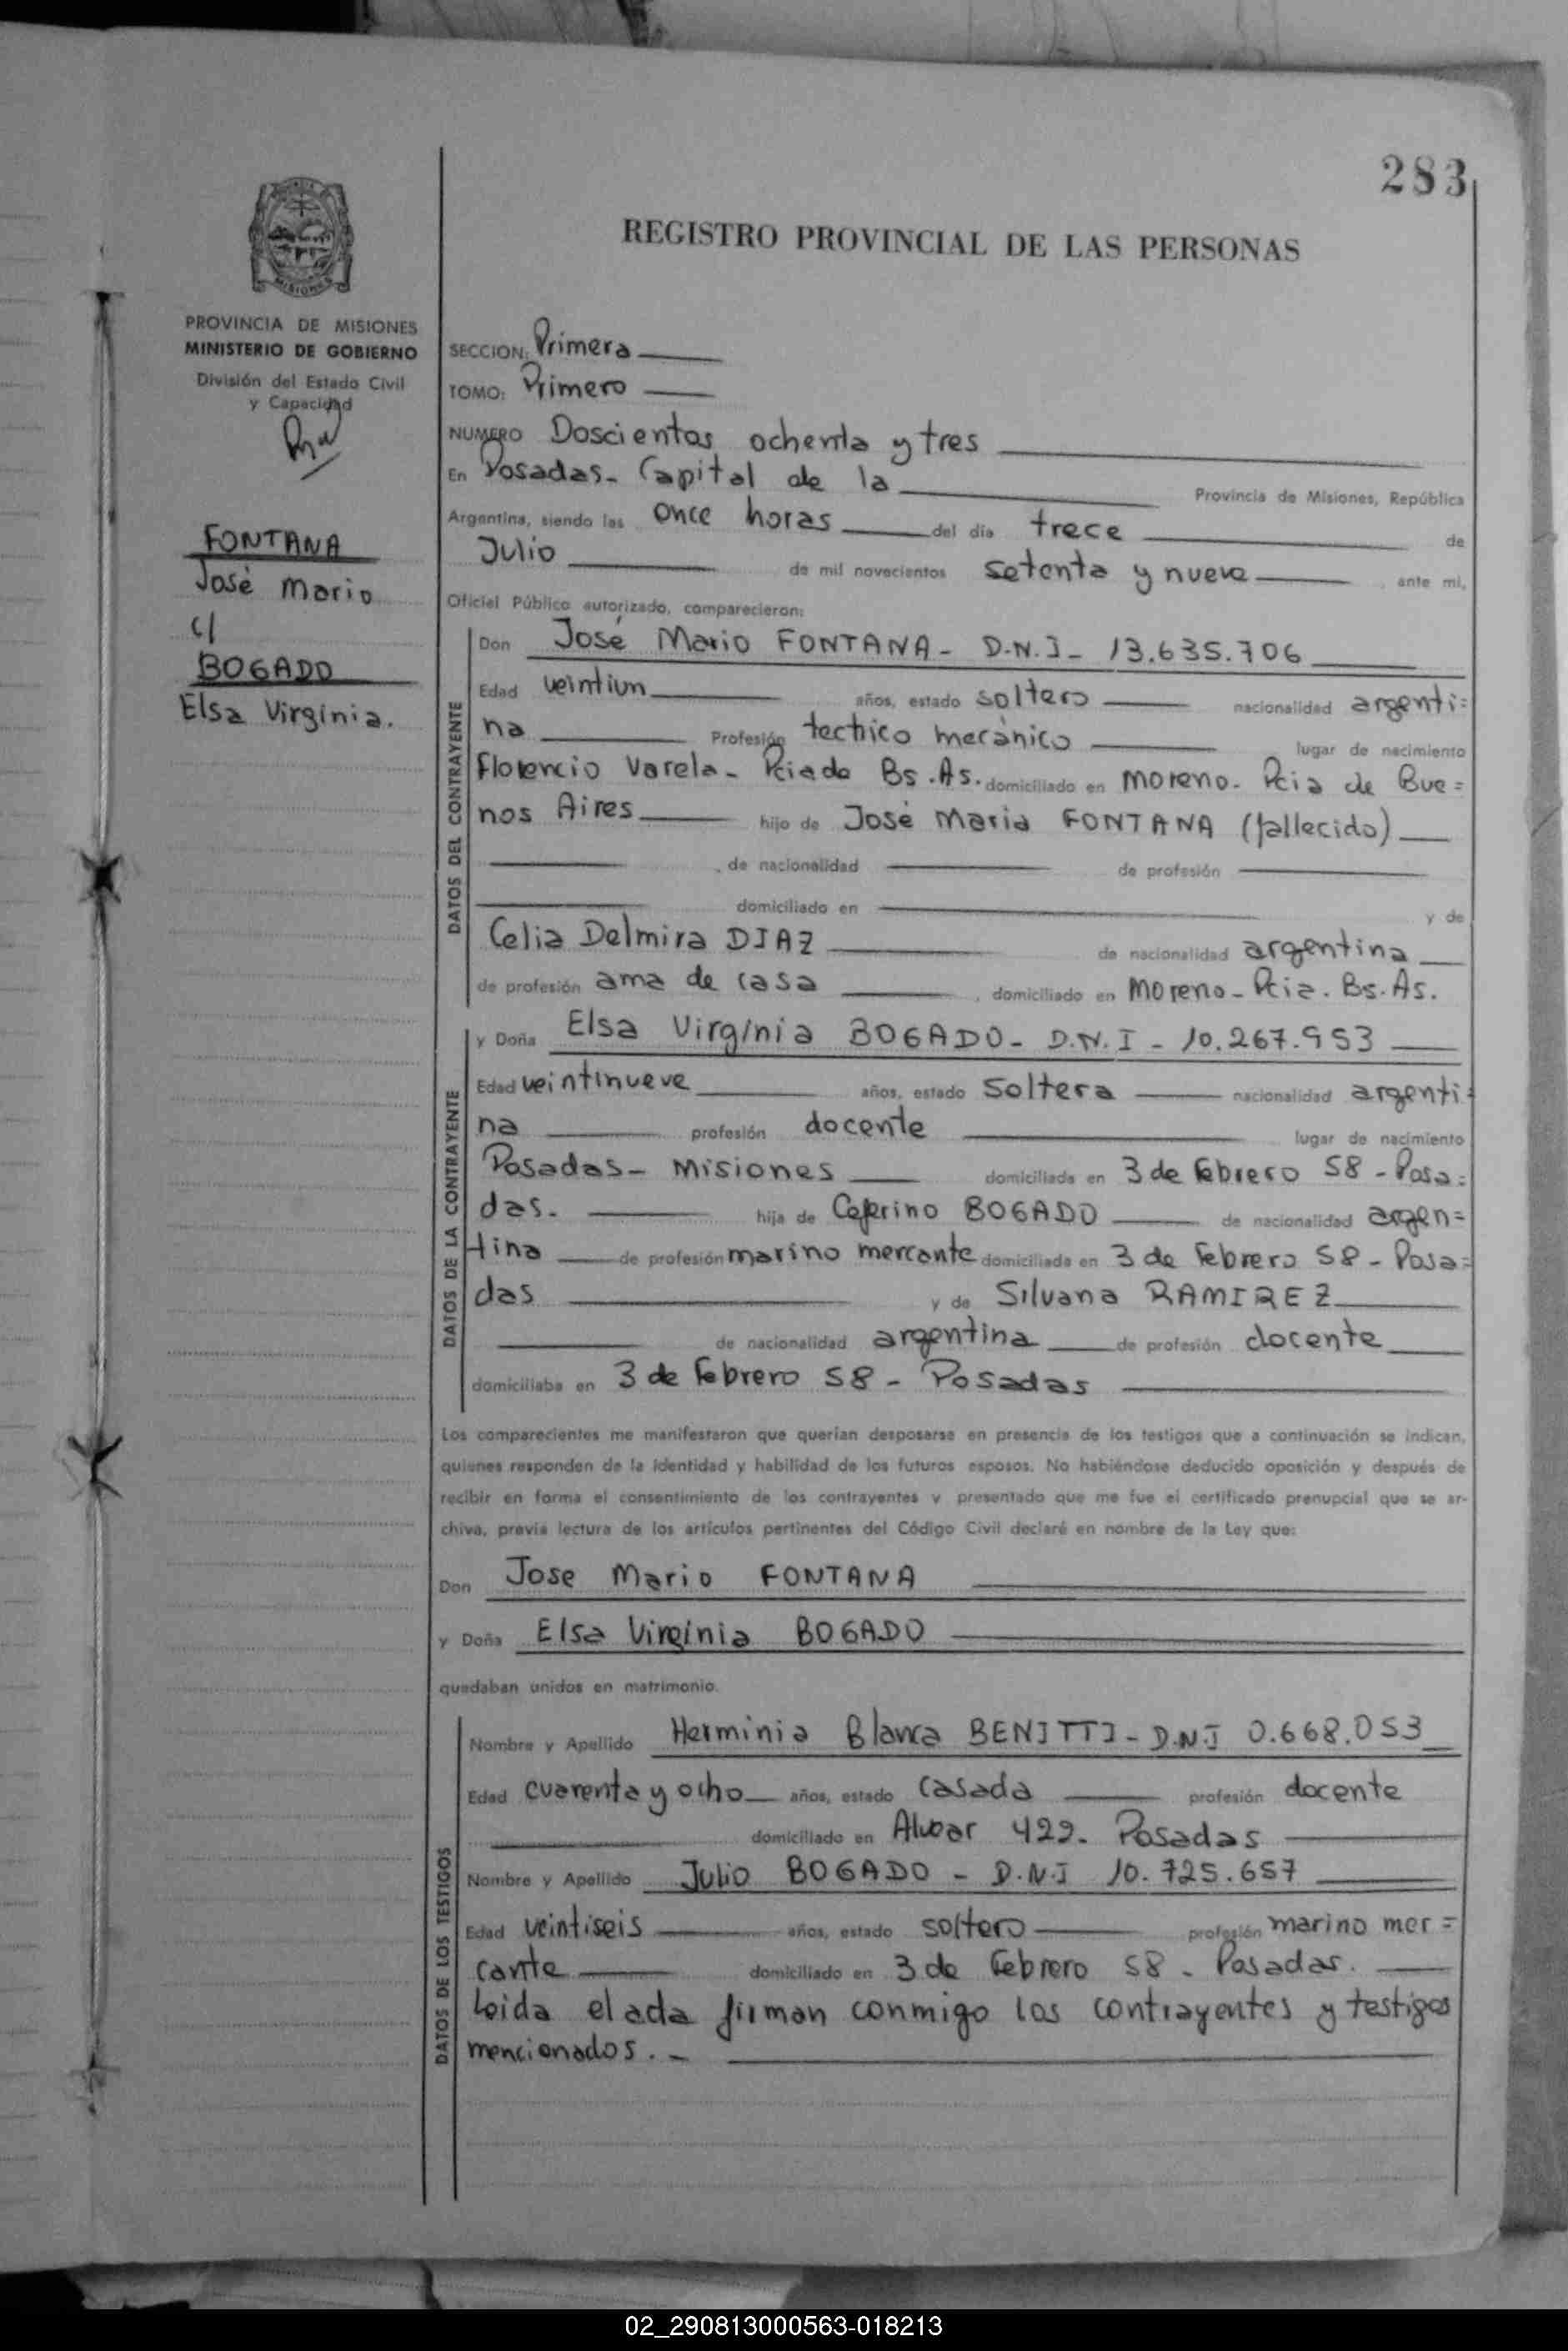 283
REGISTRO PROVINCIAL DE LAS PERSONAS
MISIONES
PROVINCIA DE MISIONES
MINISTERIO DE GOBIERNO
División del Estado Civil
y Capacidad
FONTANA
José Mario
c/
BOGADO
Elsa Virginia.
SECCION: Primera
TOMO: Primero
NUMERO Doscientos ochenta y tres
En Posadas - Capital de la Provincia de Misiones, República
Argentina, siendo las once horas del día trece de
Julio de mil novecientos setenta y nueve ante mi,
Oficial Público autorizado, comparecieron:
DATOS DEL CONTRAYENTE
Don José Mario FONTANA - D.N.I - 13.635.706
Edad veintiun años, estado soltero nacionalidad argenti=
na Profesión technico mecánico lugar de nacimiento
Florencio Varela - Pcia de Bs. As. domiciliado en Moreno - Pcia de Bue=
nos Aires hijo de José Maria FONTANA (fallecido)
, de nacionalidad de profesión
domiciliado en y de
Celia Delmira DIAZ de nacionalidad argentina
de profesión ama de casa , domiciliado en Moreno - Pcia. Bs. As.
DATOS DE LA CONTRAYENTE
y Doña Elsa Virginia BOGADO - D.N.I - 10.267.953
Edad veintinueve años, estado soltera nacionalidad argenti=
na profesión docente lugar de nacimiento
Posadas - Misiones domiciliada en 3 de Febrero 58 - Posa=
das. hija de Ceferino BOGADO de nacionalidad argen=
tina de profesión marino mercante domiciliado en 3 de Febrero 58 - Posa=
das y de Silvana RAMIREZ
de nacionalidad argentina de profesión docente
domiciliaba en 3 de Febrero 58 - Posadas
Los comparecientes me manifestaron que querían desposarse en presencia de los testigos que a continuación se indican,
quienes responden de la identidad y habilidad de los futuros esposos. No habiéndose deducido oposición y después de
recibir en forma el consentimiento de los contrayentes y presentado que me fue el certificado prenupcial que se ar-
chiva, previa lectura de los artículos pertinentes del Código Civil declaré en nombre de la Ley que:
Don Jose Mario FONTANA
y Doña Elsa Virginia BOGADO
quedaban unidos en matrimonio.
DATOS DE LOS TESTIGOS
Nombre y Apellido Herminia Blanca BENITTI - D.N.I 0.668.053
Edad cuarenta y ocho años, estado casada profesión docente
domiciliado en Alvear 422 - Posadas
Nombre y Apellido Julio BOGADO - D.N.I 10.725.657
Edad veintiseis años, estado soltero profesión marino mer=
cante domiciliado en 3 de Febrero 58 - Posadas.
Leida el acta firman conmigo los contrayentes y testigos
mencionados. -
02_290813000563-018213